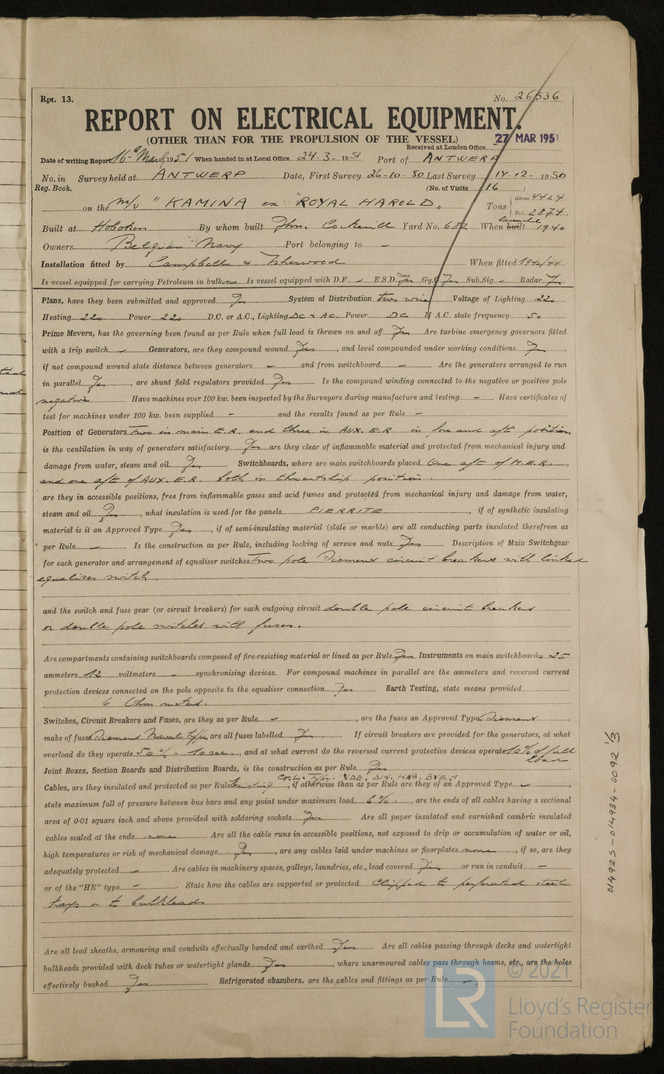 Rpt. 13. No. 26536
REPORT ON ELECTRICAL EQUIPMENT.
(OTHER THAN FOR THE PROPULSION OF THE VESSEL) 27 MAR 1951
Received at London Office
Date of writing Report 16th March 1951 When handed in at Local Office 24-3-1951 Port of ANTWERP
No. in Survey held at ANTWERP Date, First Survey 26-10-50 Last Survey 14-02-1950
Reg. Book. (No. of Visits 16)
on the M/V "KAMINA ex "ROYAL HAROLD. Tons { Gross 4424
Net 2874
Built at Hoboken By whom built John Cockerill Yard No. 682 When built launched 1940
Owners Belgian Navy Port belonging to -
Installation fitted by Campbell & Isherwood When fitted 194
Is vessel equipped for carrying Petroleum in bulk Is vessel equipped with D.F - E.S.D Yes Gy.C Yes Sub.Sig. - Radar Yes
Plans, have they been submitted and approved Yes System of Distribution two wire Voltage of Lighting 220
Heating 220 Power 220 D.C. or A.C., Lighting DC & AC Power DC If A.C. state frequency 50
Prime Movers, has the governing been found as per Rule when full load is thrown on and off Yes Are turbine emergency governors fitted
with a trip switch - Generators, are they compound wound Yes, and level compounded under working conditions Yes,
if not compound wound state distance between generators - and from switchboard - Are the generators arranged to run
in parallel Yes, are shunt field regulators provided Yes Is the compound winding connected to the negative or positive pole
negative Have machines over 100 kw. been inspected by the Surveyors during manufacture and testing - Have certificates of
test for machines under 100 kw. been supplied - and the results found as per Rule -
Position of Generators Two in main E.R. and three in AUX. E.R in fore and aft position
is the ventilation in way of generators satisfactory Yes are they clear of inflammable material and protected from mechanical injury and
damage from water, steam and oil Yes Switchboards, where are main switchboards placed One aft of M.E.R.
and one aft of AUX. E.R. both in thwartship position.
are they in accessible positions, free from inflammable gases and acid fumes and protected from mechanical injury and damage from water,
steam and oil Yes, what insulation is used for the panels PIERRITE, if of synthetic insulating
material is it an Approved Type Yes, if of semi-insulating material (slate or marble) are all conducting parts insulated therefrom as
per Rule - Is the construction as per Rule, including locking of screws and nuts Yes Description of Main Switchgear
for each generator and arrangement of equaliser switches Two pole Diamond circuit breakers with linked
equaliser switch.
and the switch and fuse gear (or circuit breakers) for each outgoing circuit double pole circuit breakers
or double pole switches with fuses.
Are compartments containing switchboards composed of fire-resisting material or lined as per Rule Yes Instruments on main switchboards 25
ammeters 12 voltmeters - synchronising devices. For compound machines in parallel are the ammeters and reversed current
protection devices connected on the pole opposite to the equaliser connection Yes Earth Testing, state means provided
6 Ohm meters.
Switches, Circuit Breakers and Fuses, are they as per Rule -, are the fuses an Approved Type Diamond
make of fuses Diamond Naval type, are all fuses labelled Yes If circuit breakers are provided for the generators, at what
overload do they operate 50% - 10 sec, and at what current do the reversed current protective devices operate 10% of full
load
Joint Boxes, Section Boards and Distribution Boards, is the construction as per Rule Yes
Cables, are they insulated and protected as per Rule, if otherwise than as per Rule are they of an Approved Type -,
state maximum fall of pressure between bus bars and any point under maximum load 6%., are the ends of all cables having a sectional
area of 0·01 square inch and above provided with soldering sockets Yes Are all paper insulated and varnished cambric insulated
cables sealed at the ends none Are all the cable runs in accessible positions, not exposed to drip or accumulation of water or oil,
high temperatures or risk of mechanical damage Yes, are any cables laid under machines or floorplates none, if so, are they
adequately protected - Are cables in machinery spaces, galleys, laundries, etc., lead covered Yes or run in conduit -
or of the "HR" type - State how the cables are supported or protected Clipped to perforated steel
trays or to bulkheads
Are all lead sheaths, armouring and conduits effectually bonded and earthed Yes Are all cables passing through decks and watertight
bulkheads provided with deck tubes or watertight glands Yes, where unarmoured cables pass through beams, etc., are the holes
effectively bushed Yes Refrigerated chambers, are the cables and fittings as per Rule -
014925-014934-0092 1/3
LR
© 2021
Lloyd's Register
Foundation